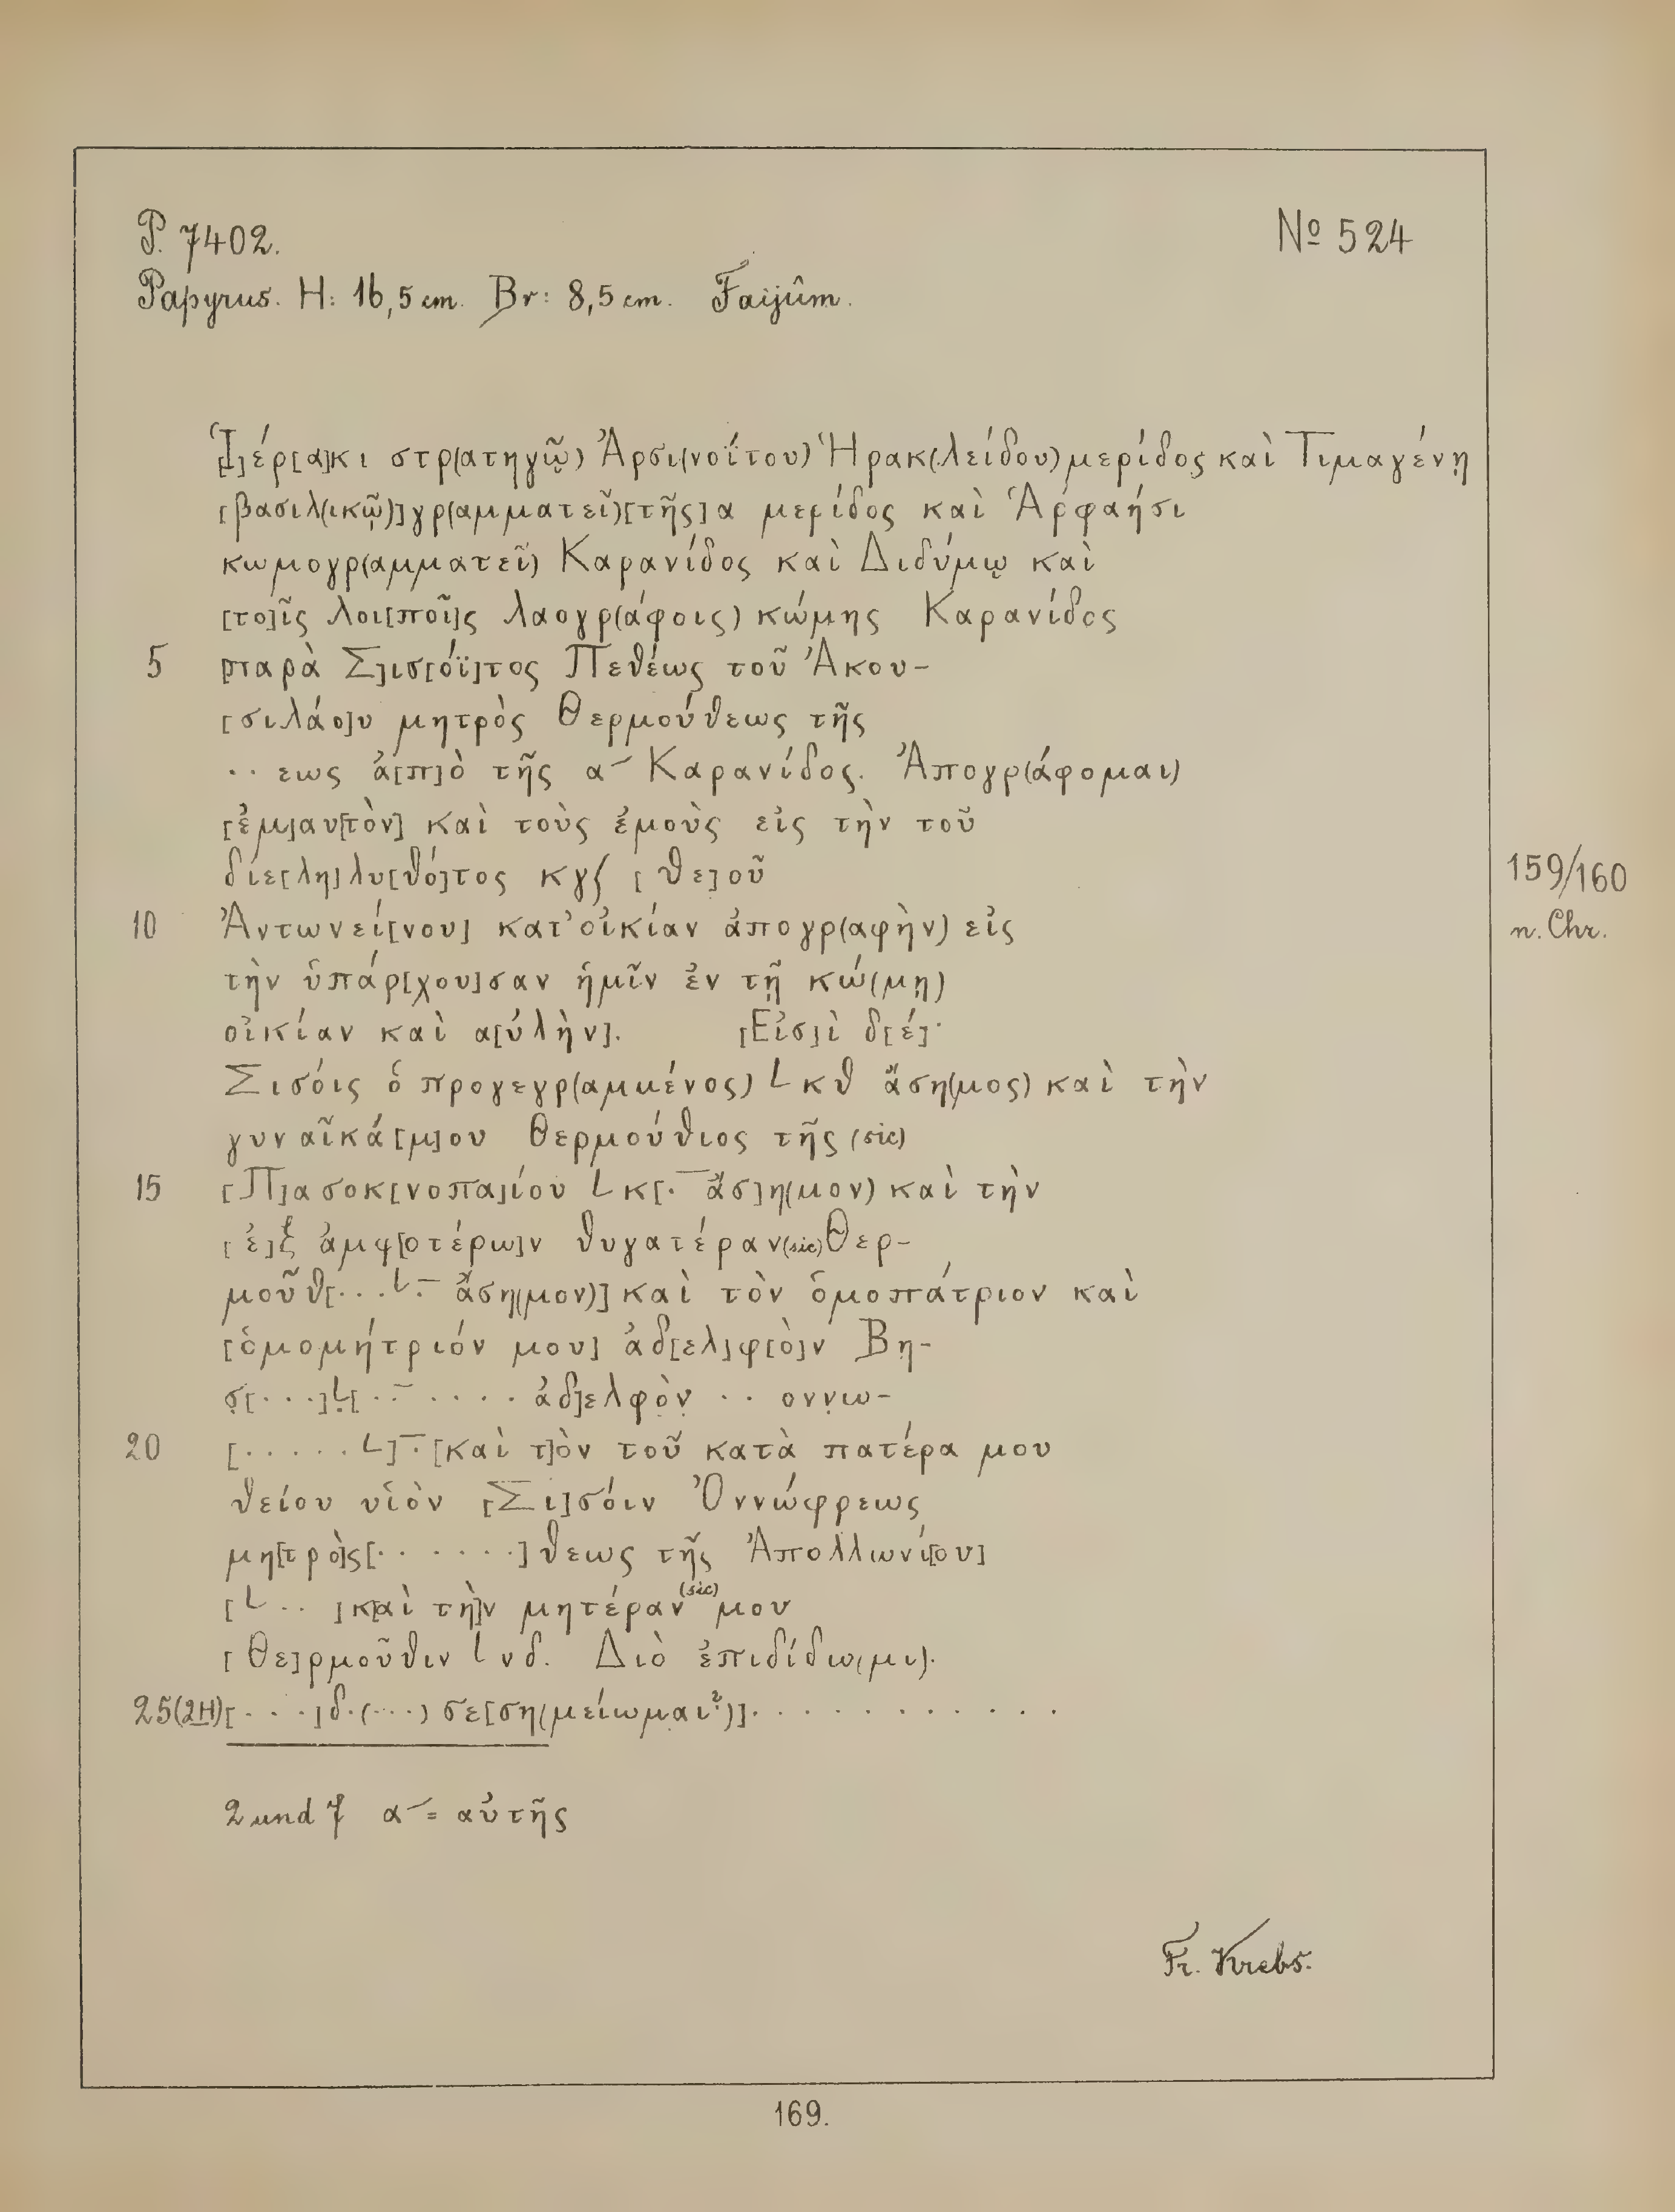 P. 7402.
№ 524
Papyrus. H: 16,5 cm. Br: 8,5 cm. Faijûm.
[Ἱ]έρ[α]κι στρ(ατηγῷ) Ἀρσι(νοΐτου) Ἡρακ(λείδου) μερίδος καὶ Τιμαγένῃ
[βασιλ(ικῷ)] γρ(αμματεῖ) [τῆς] α μερίδος καὶ Ἁρφαήσι
κωμογρ(αμματεῖ) Καρανίδος καὶ Διδύμῳ καὶ
[το]ῖς λοι[ποῖ]ς λαογρ(άφοις) κώμης Καρανίδος
5 [παρὰ Σ]ισ[όϊ]τος Πεθέως τοῦ Ἀκου-
[σιλάο]υ μητρὸς Θερμούθεως τῆς
·· εως ἀ[π]ὸ τῆς α– Καρανίδος. Ἀπογρ(άφομαι)
[ἐμ]αυ[τὸν] καὶ τοὺς ἐμοὺς εἰς τὴν τοῦ
διε[λη]λυ[θό]τος κγ∫ [θε]οῦ
159/160
n. Chr.
10 Ἀντωνεί[νου] κατ' οἰκίαν ἀπογρ(αφὴν) εἰς
τὴν ὑπάρ[χου]σαν ἡμῖν ἐν τῇ κώ(μῃ)
οἰκίαν καὶ α[ὐλὴν]. [Εἰσ]ὶ δ[έ]·
Σισόις ὁ προγεγρ(αμμένος) L κθ ἄση(μος) καὶ τὴν
γυναῖκά [μ]ου Θερμούθιος τῆς (sic)
15 [Π]ασοκ[νοπα]ίου L κ[·‾ ἄσ]η(μον) καὶ τὴν
[ἐ]ξ ἀμφ[οτέρω]ν θυγατέραν (sic) Θερ-
μοῦθ[··· L ·‾ ἄση(μον)] καὶ τὸν ὁμοπάτριον καὶ
[ὁμομήτριόν μου] ἀδ[ελ]φ[ὸ]ν Βη-
σ̣[···]Ḷ[··‾ ···· ἀδ]ελφὸν̣ ·· ονν̣ω-
20 [····· L]·‾ [καὶ τ]ὸν τοῦ κατὰ πατέρα μου
θείου υἱὸν [Σι]σόιν Ὀννώφρεως
μη[τρὸ]ς [······]θεως τῆς Ἀπολλωνί[ου]
[L ·· ] κ[αὶ τὴ]ν μητέραν (sic) μου
[Θε]ρμοῦθιν L νδ. Διὸ ἐπιδίδω(μι).
25 (2H) [····]δ·(···) σε[ση(μείωμαι?)]············
2 und 7 α– = αὐτῆς
Fr. Krebs.
169.